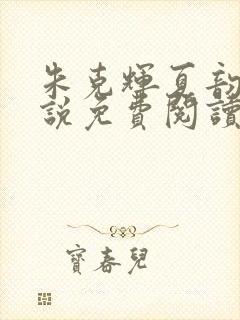 朱克輝夏韵
說免費閱讀
寶春兒